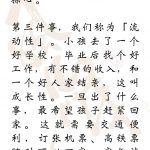 第三件事，我们称为「流
动性」。小孩去了一个
好学校，毕业后找个好
工作，有不错的收入，和
一个好人家结亲，这叫
成长性。一旦出了什么
事，最希望孩子赶紧回
来。这就需要交通便
利，订张机票、高铁票